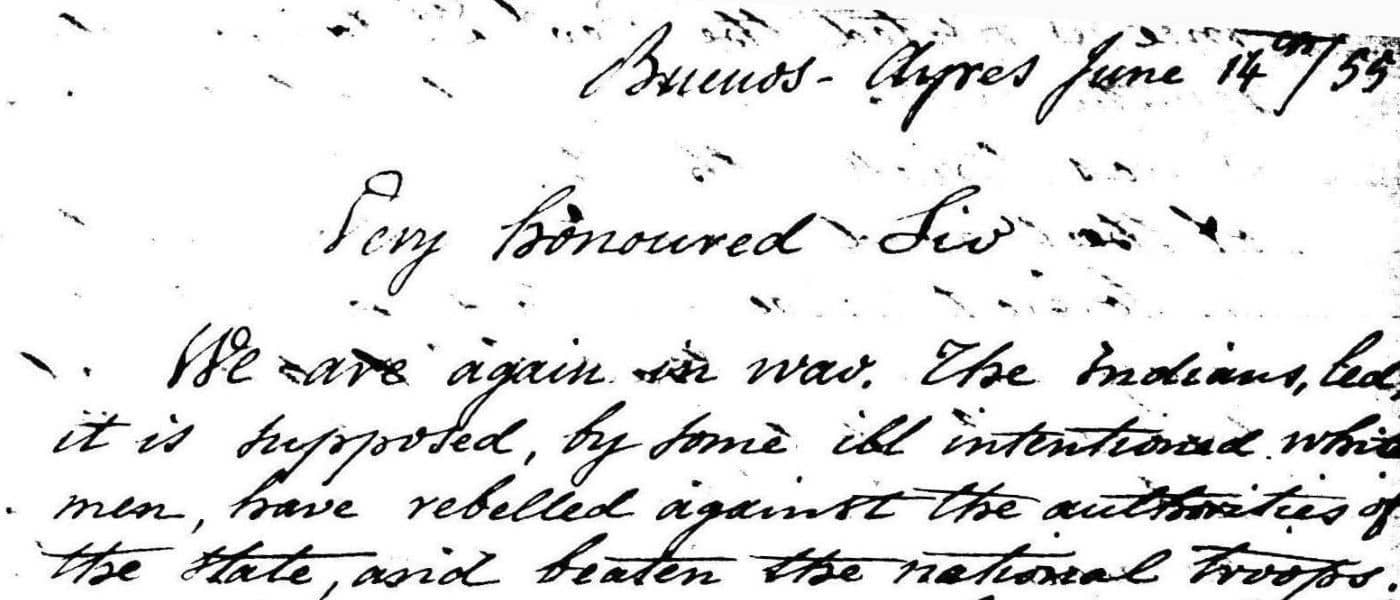 Buenos-Ayres June 14th/55
Very honoured Sir
We are again in war. The Indians, led,
it is supposed, by some ill intentioned white
men, have rebelled against the authorities of
the state, and beaten the national troops.